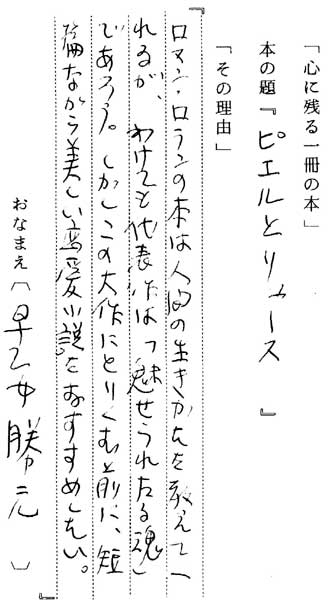 「心に残る一冊の本」
本の題『ピエルとリュース』
「その理由」
『ロマン・ロランの本は人間の生き方を教えてく
れるが、わけても代表作は「魅せられたる魂」
であろう。しかしこの大作にとりくむ前に、短
篇ながら美しい恋愛小説をおすすめしたい。
おなまえ〔早乙女勝元〕
』